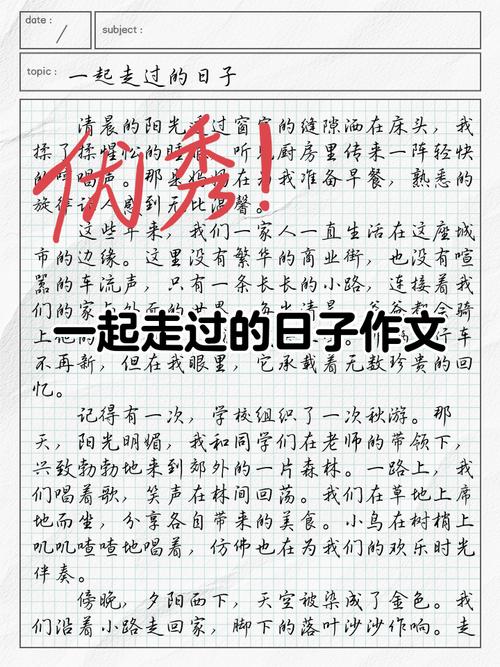 date :
subject :
topic : 一起走过的日子
清晨的阳光透过窗帘的缝隙洒在床头，我
揉了揉惺忪的睡眼，听见厨房里传来一阵轻快
的哼唱声。那是妈妈在为我准备早餐，熟悉的
旋律让人感到无比温馨。
优秀！
这些年来，我们一家人一直生活在这座城
市的边缘。这里没有繁华的商业街，也没有喧
嚣的车流声，只有一条长长的小路，连接着我
们的家与外面的世界。每当清晨，爸爸都会骑
上他的
行车
一起走过的日子作文
不再新，但在我眼里，它承载着无数珍贵的回
忆。
记得有一次，学校组织了一次秋游。那
天，阳光明媚，我和同学们在老师的带领下，
兴致勃勃地来到郊外的一片森林。一路上，我
们唱着歌，笑声在林间回荡。我们在草地上席
地而坐，分享各自带来的美食。小鸟在树梢上
叽叽喳喳地唱着，仿佛也在为我们的欢乐时光
伴奏。
傍晚，夕阳西下，天空被染成了金色。我
们沿着小路走回家，脚下的落叶沙沙作响。走